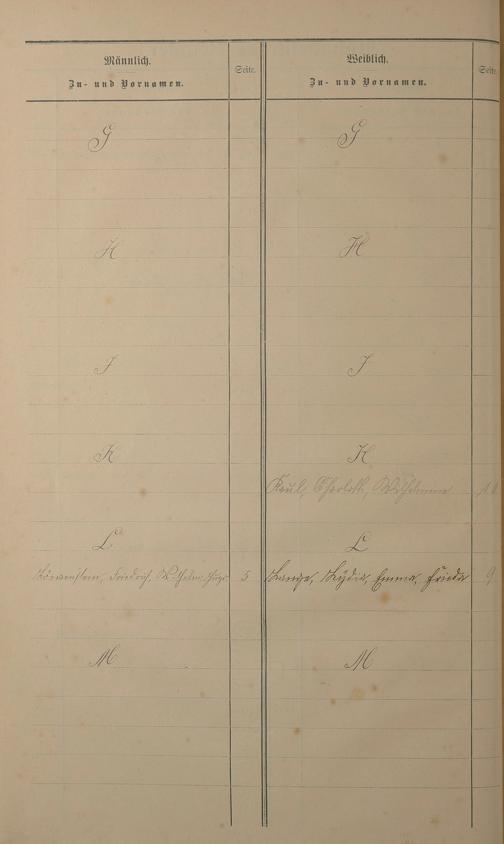 Männlich.
Zu- und Vornamen.
Seite.
Weiblich.
Zu- und Vornamen.
Seite.
G
G
H
H
I
I
K
K
Paul, Charlott, Wilhelmine
L
L
Löwenstein, Friedrich, Wilhelm, 5
Lange, Lydia, Emma, Frieda 9
M
M